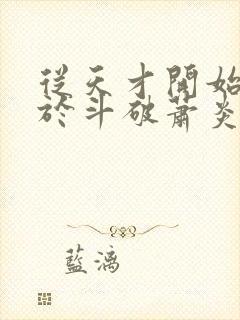 從天才開始
於斗破蕭炎
藍漓